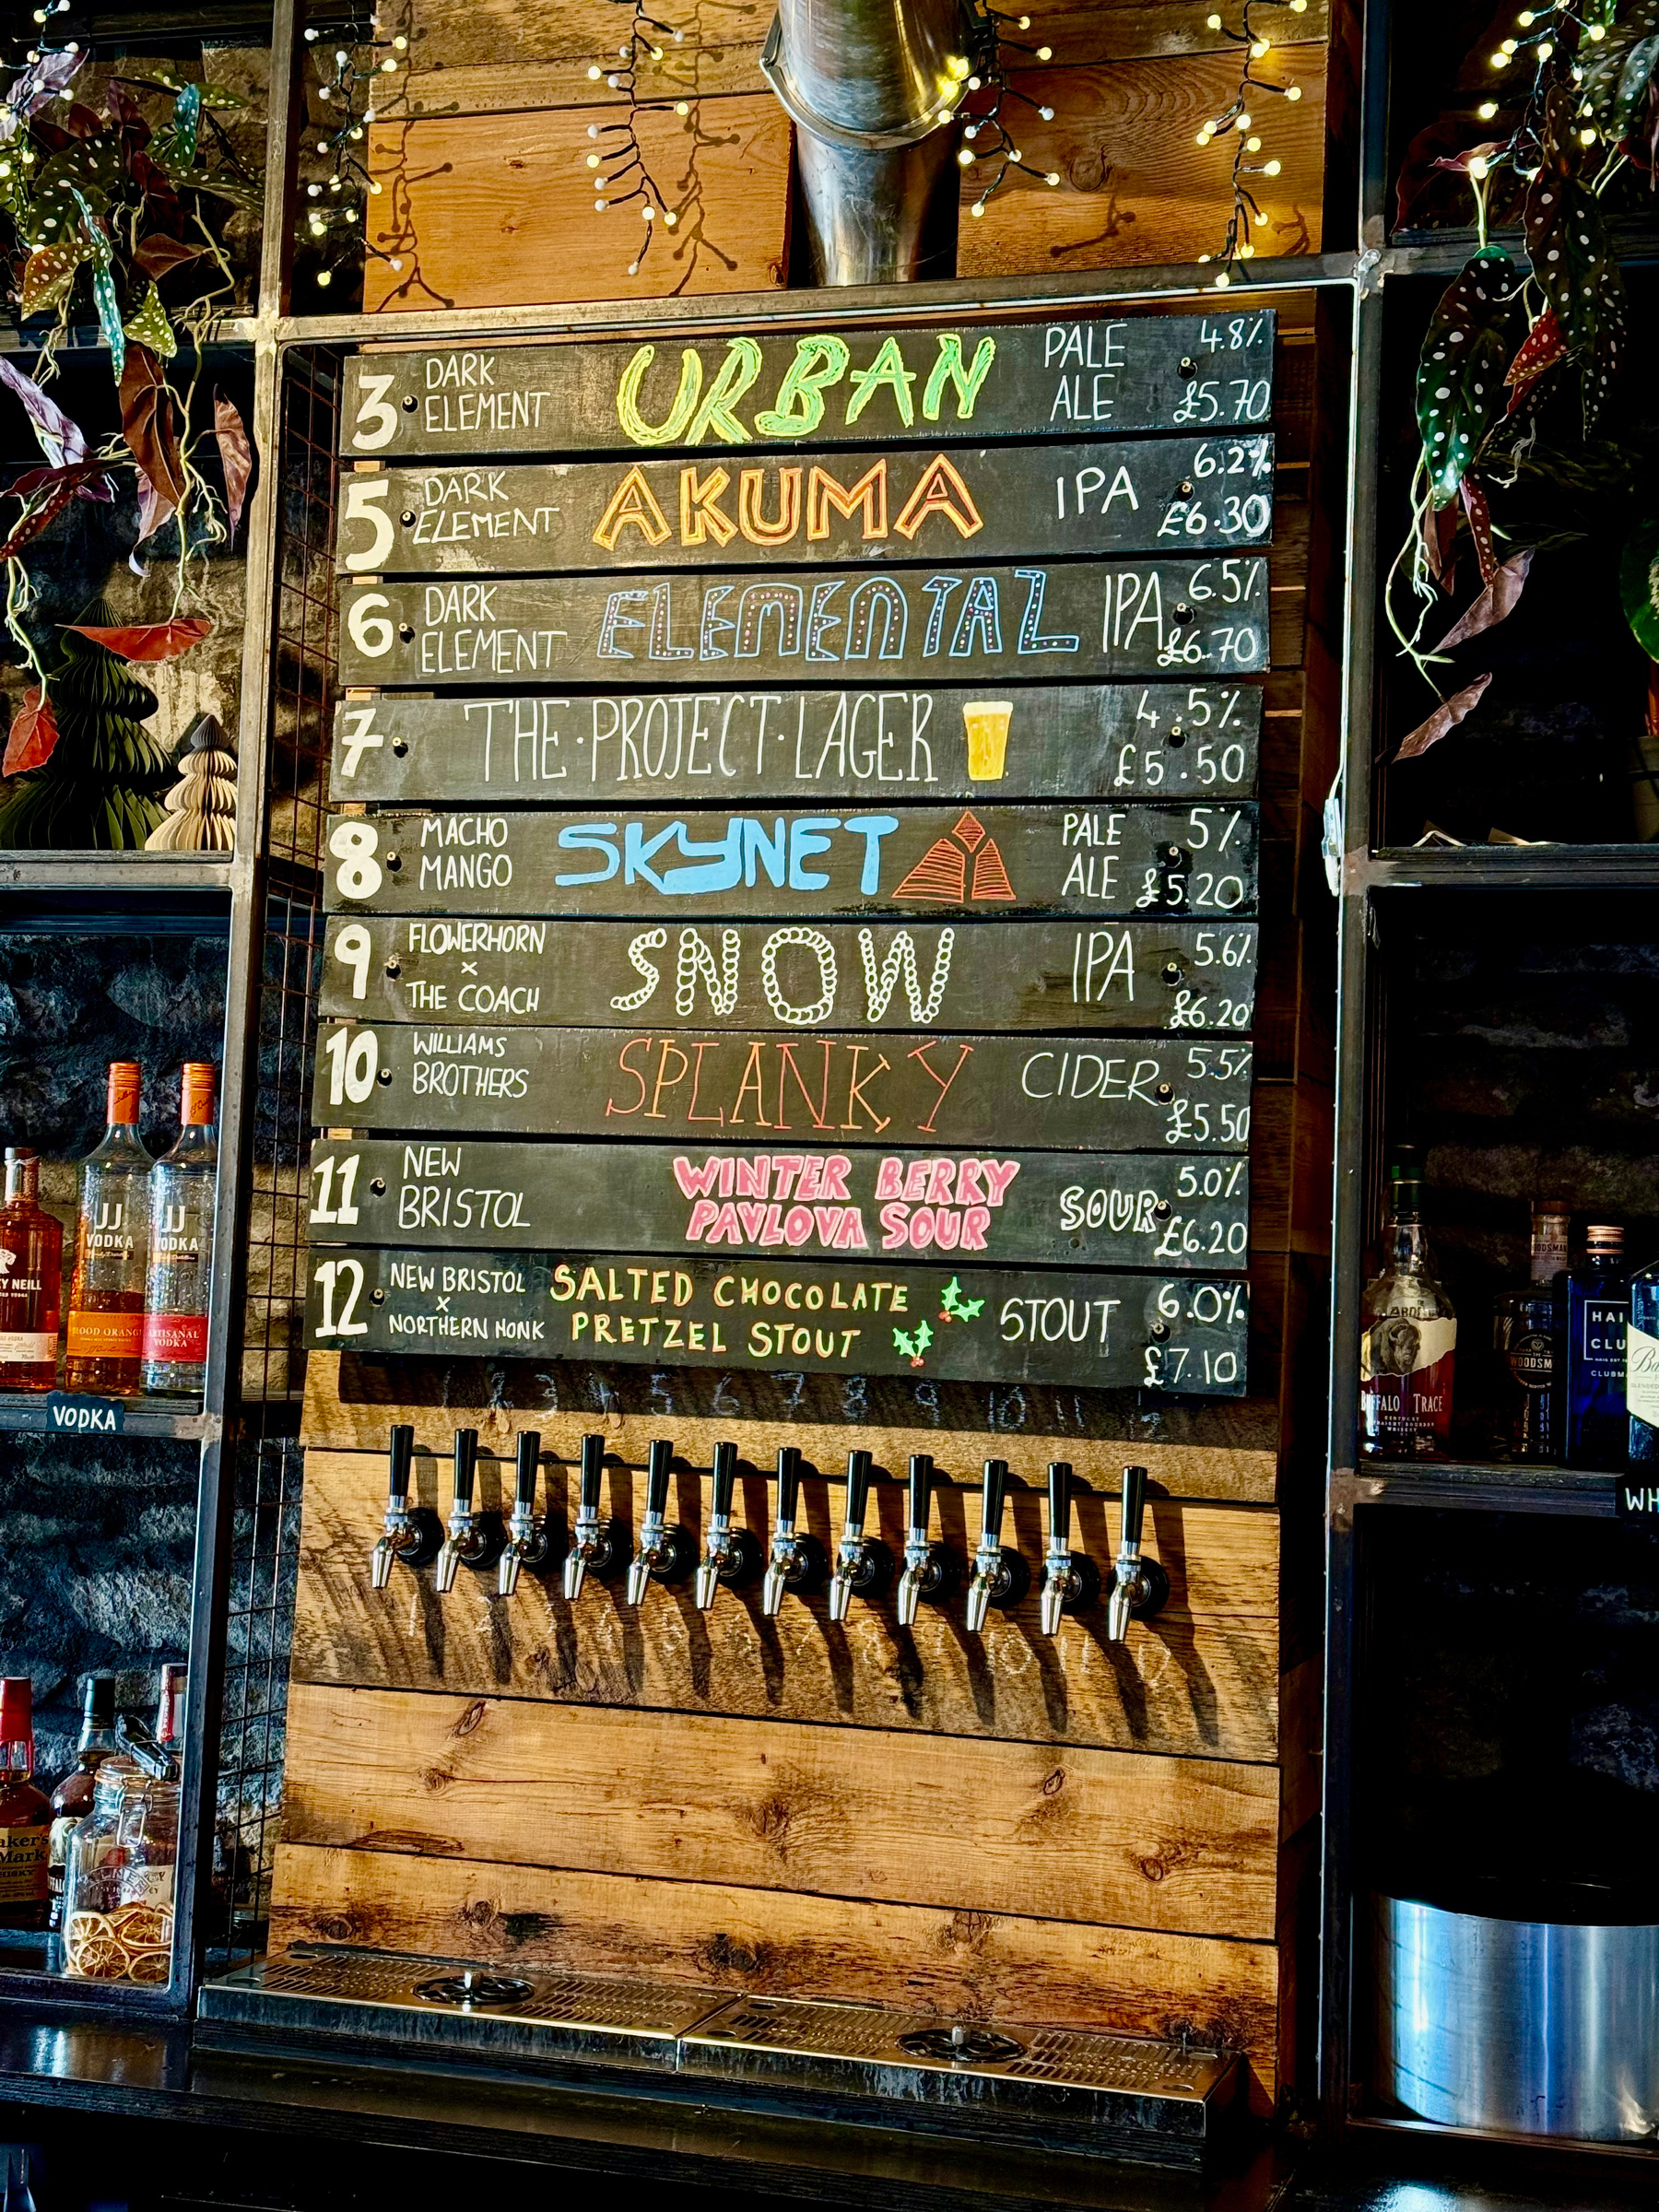 3 DARK ELEMENT URBAN PALE ALE 4.8% £5.70
5 DARK ELEMENT AKUMA IPA 6.2% £6.30
6 DARK ELEMENT ELEMENTAL IPA 6.5% £6.70
7 THE·PROJECT·LAGER 4.5% £5.50
8 MACHO MANGO SKYNET PALE ALE 5% £5.20
9 FLOWERHORN x THE COACH SNOW IPA 5.6% £6.20
10 WILLIAMS BROTHERS SPLANKY CIDER 5.5% £5.50
11 NEW BRISTOL WINTER BERRY PAVLOVA SOUR SOUR 5.0% £6.20
12 NEW BRISTOL x NORTHERN MONK SALTED CHOCOLATE PRETZEL STOUT STOUT 6.0% £7.10
2 3 4 5 6 7 8 9 10 11
JJ
VODKA
BLOOD ORANGE
JJ
VODKA
ARTISANAL
VODKA
NEILL
VODKA
BUFFALO TRACE
KENTUCKY
STRAIGHT BOURBON
WHISKEY
WOODSM
HAI
CLU
CLUBM
WH
aker's
Mark